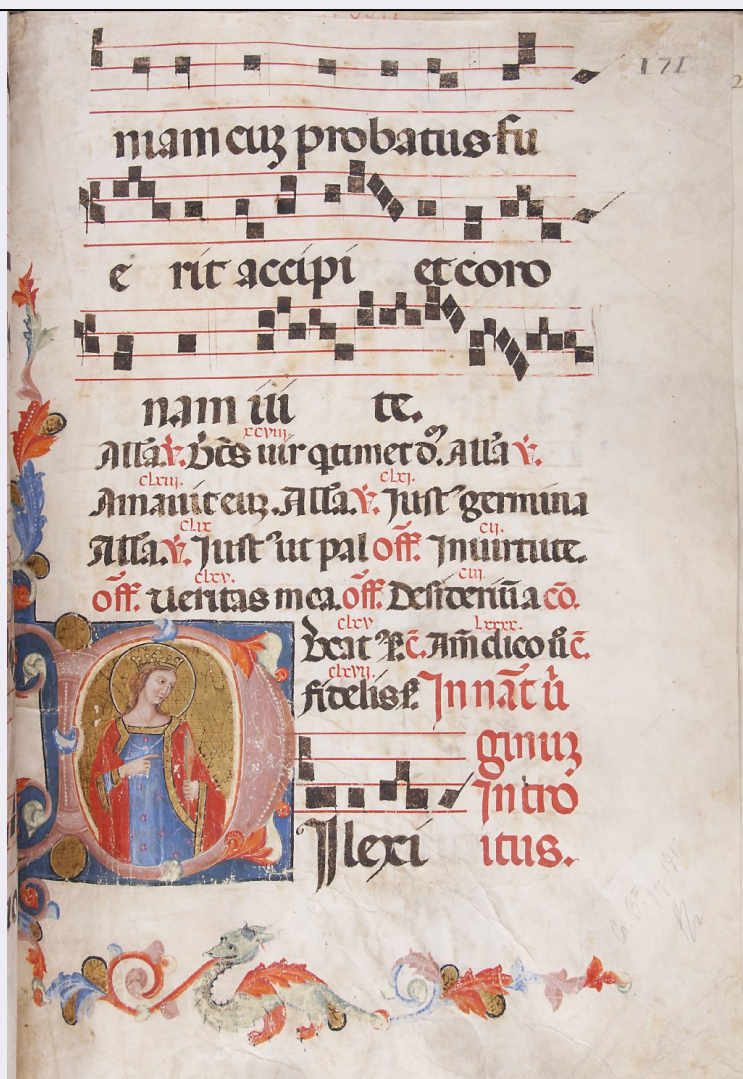 171
niam cuz probatus fu
e rit accipi et coro
nam iii te.
xcviii.
Alla. v. Bts uir qtimet d. Alla v.
clxiii. clxi.
Amauit euz. Alla. v. Just germina
clix cii.
Alla. v. Just ut pal off. Inuirtute.
clxv. ciii
off. Ueritas mea. off. Desideriu a co.
clxv lxxxx.
Beat c. Am dico c.
clxvii.
fidelis In nat u
ginuz
Intro
Dilexi itus.